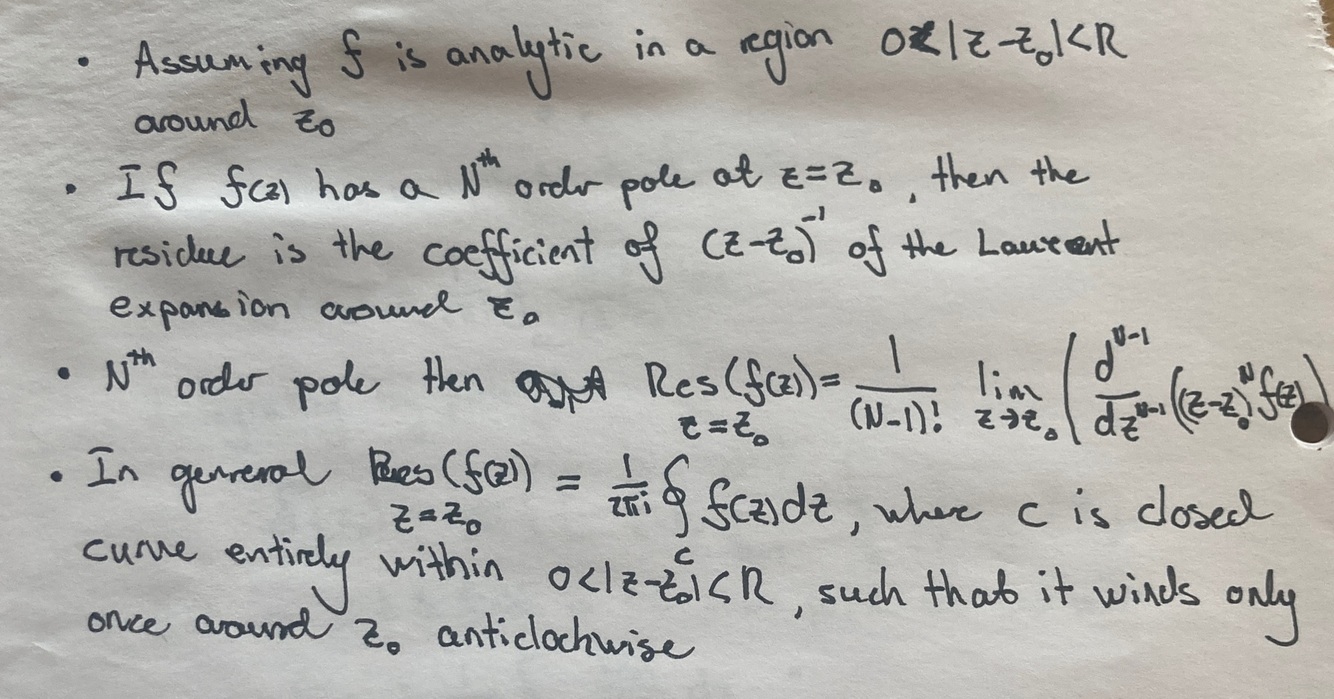 • Assuming f is analytic in a region 0<|z-z₀|<R
around z₀
• If f(z) has a Nᵗʰ order pole at z=z₀, then the
residue is the coefficient of (z-z₀)⁻¹ of the Laurent
expansion around z₀
• Nᵗʰ order pole then Res(f(z)) = 1/(N-1)! lim (dᴺ⁻¹/dzᴺ⁻¹ ((z-z₀)ᴺ f(z)))
z=z₀ z→z₀
• In genreral Res(f(z)) = 1/2πi ∮ f(z)dz, where c is closed
z=z₀ c
curve entirely within 0<|z-z₀|<R, such that it winds only
once around z₀ anticlockwise